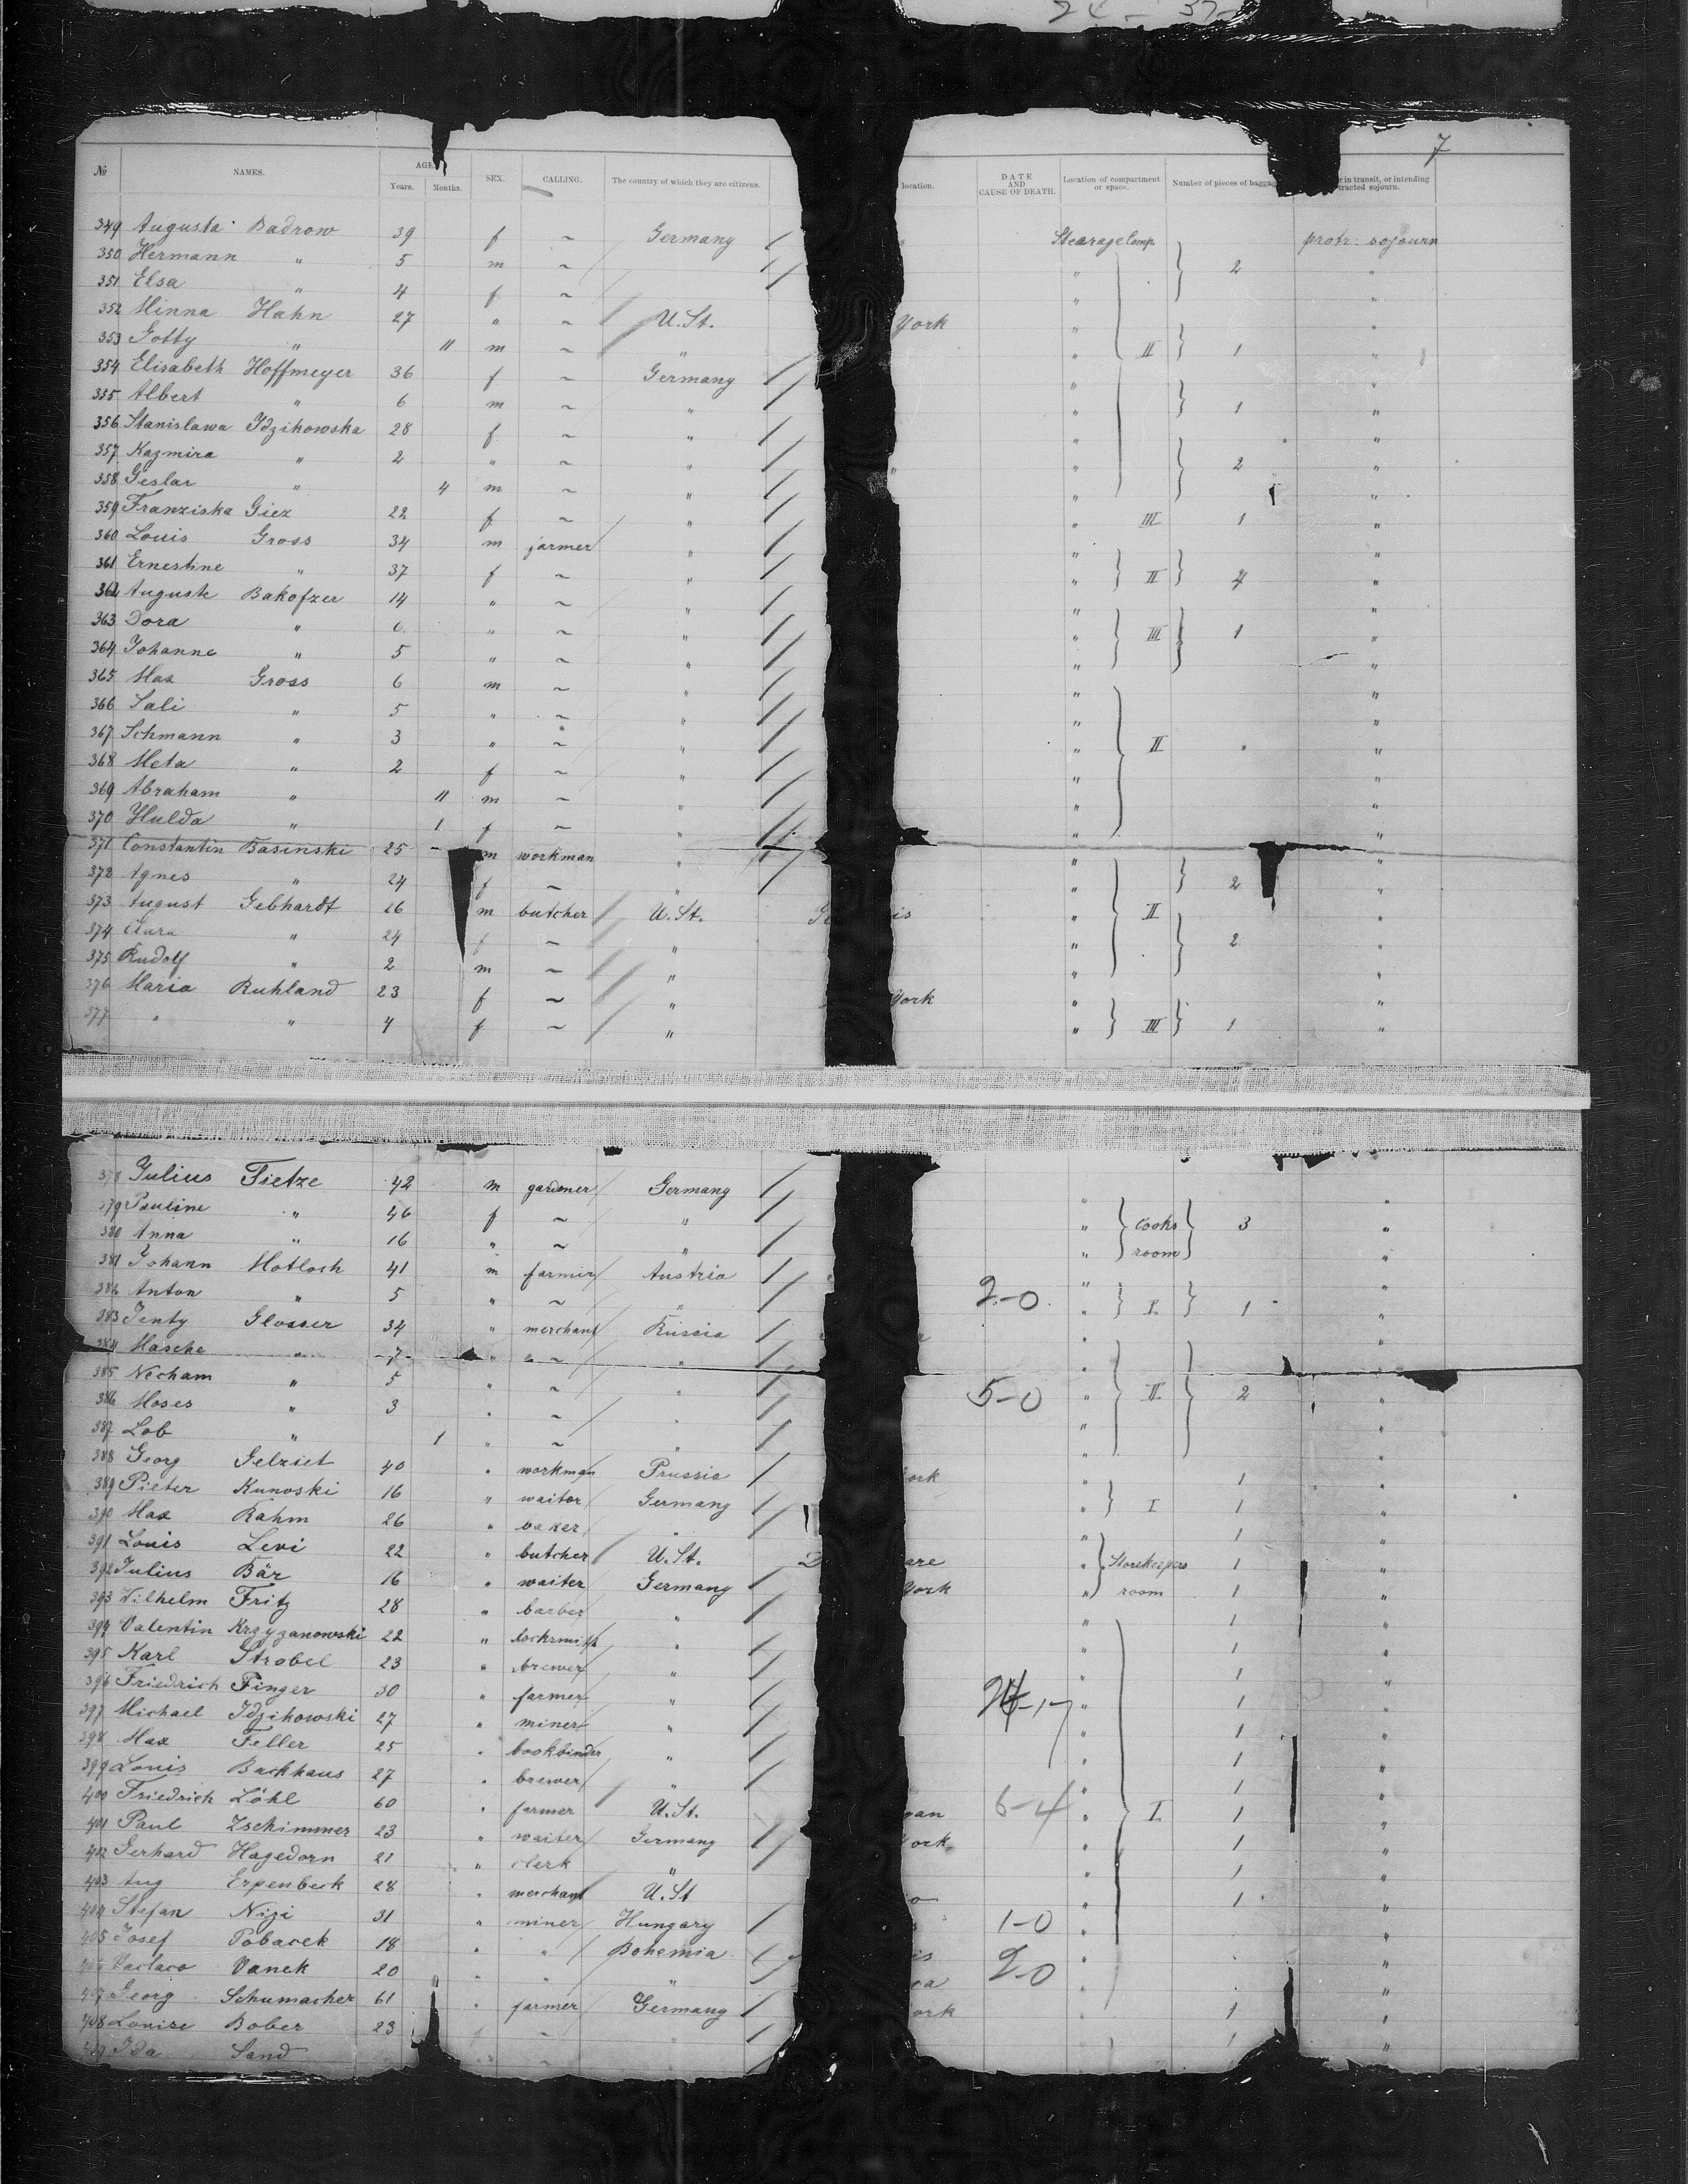 24 - 37-
7
№ NAMES. AGE. Years. Months. SEX. CALLING. The country of which they are citizens. location. DATE AND CAUSE OF DEATH. Location of compartment or space. Number of pieces of baggag in transit, or intending tracted sojourn.
349 Augusta Badrow 39 f ~ Germany Stearage Comp. protr. sojourn
350 Hermann " 5 m ~ " 2 "
351 Elsa " 4 f ~ " "
352 Minna Hahn 27 " ~ U. St. York " "
353 Gotty " 11 m ~ " " II 1 "
354 Elisabeth Hoffmeyer 36 f ~ Germany " "
355 Albert " 6 m ~ " " 1 "
356 Stanislawa Idzikowska 28 f ~ " " "
357 Kazmira " 2 " ~ " " " 2 "
358 Geslar " 4 m ~ " " "
359 Franziska Giez 22 f ~ " " III 1 "
360 Louis Gross 34 m farmer " " "
361 Ernestine " 37 f ~ " " II 4 "
362 Auguste Bakofzer 14 " ~ " " "
363 Dora " 6 " ~ " " III 1 "
364 Johanne " 5 " ~ " " "
365 Max Gross 6 m ~ " " "
366 Sali " 5 " ~ " " "
367 Schmann " 3 " ~ " " II " "
368 Meta " 2 f ~ " " "
369 Abraham " 11 m ~ " " "
370 Hulda " 1 f ~ " " "
371 Constantin Basinski 25 m workman " " "
372 Agnes " 24 f ~ " " 2 "
373 August Gebhardt 26 m butcher U. St. is " II "
374 Clara " 24 f ~ " " 2 "
375 Rudolf " 2 m ~ " " "
376 Maria Ruhland 23 f ~ " York " "
377 " " 4 f ~ " " III 1 "
378 Julius Tietze 42 m gardener Germany " "
379 Pauline " 46 f ~ " " Cooks 3 "
380 Anna " 16 " ~ " " room "
381 Johann Motloch 41 m farmer Austria " "
382 Anton " 5 " ~ " 2-0 " I 1 "
383 Jenty Glosser 34 " merchant Russia " " "
384 Masche " 7 " " ~ " " "
385 Necham " 5 " ~ " 5-0 " II 2 "
386 Moses " 3 " ~ " " "
387 Lob " 1 " ~ " " "
388 Georg Gelziet 40 " workman Prussia ork " 1 "
389 Pieter Kunoski 16 " waiter Germany " I 1 "
390 Max Rahm 26 " baker " " 1 "
391 Louis Levi 22 " butcher U. St. D are " Storekeepers 1 "
392 Julius Bär 16 " waiter Germany York " room 1 "
393 Wilhelm Fritz 28 " barber " " 1 "
394 Valentin Krzyzanowski 22 " locksmith " " 1 "
395 Karl Strobel 23 " brewer " " 1 "
396 Friedrich Finger 30 " farmer " 24-1- " 1 "
397 Michael Idzikowski 27 " miner " " 1 "
398 Max Feller 25 " bookbinder " " 1 "
399 Louis Backhaus 27 " brewer " " 1 "
400 Friedrich Löhl 60 " farmer U. St. gan 6-4 " I 1 "
401 Paul Zschimmer 23 " waiter Germany York " 1 "
402 Gerhard Hagedorn 21 " clerk " " 1 "
403 Aug Erpenbeck 28 " merchant U. St io " 1 "
404 Stefan Nizi 31 " miner Hungary 1-0 " "
405 Josef Pobacek 18 " " Bohemia is " "
Vaclaco Vanek 20 " " " ca 2-0 " "
407 Georg Schumacher 61 " farmer Germany ork " 1 "
408 Louise Bober 23 f ~ " " 1 "
409 Ida Sand " ~ "